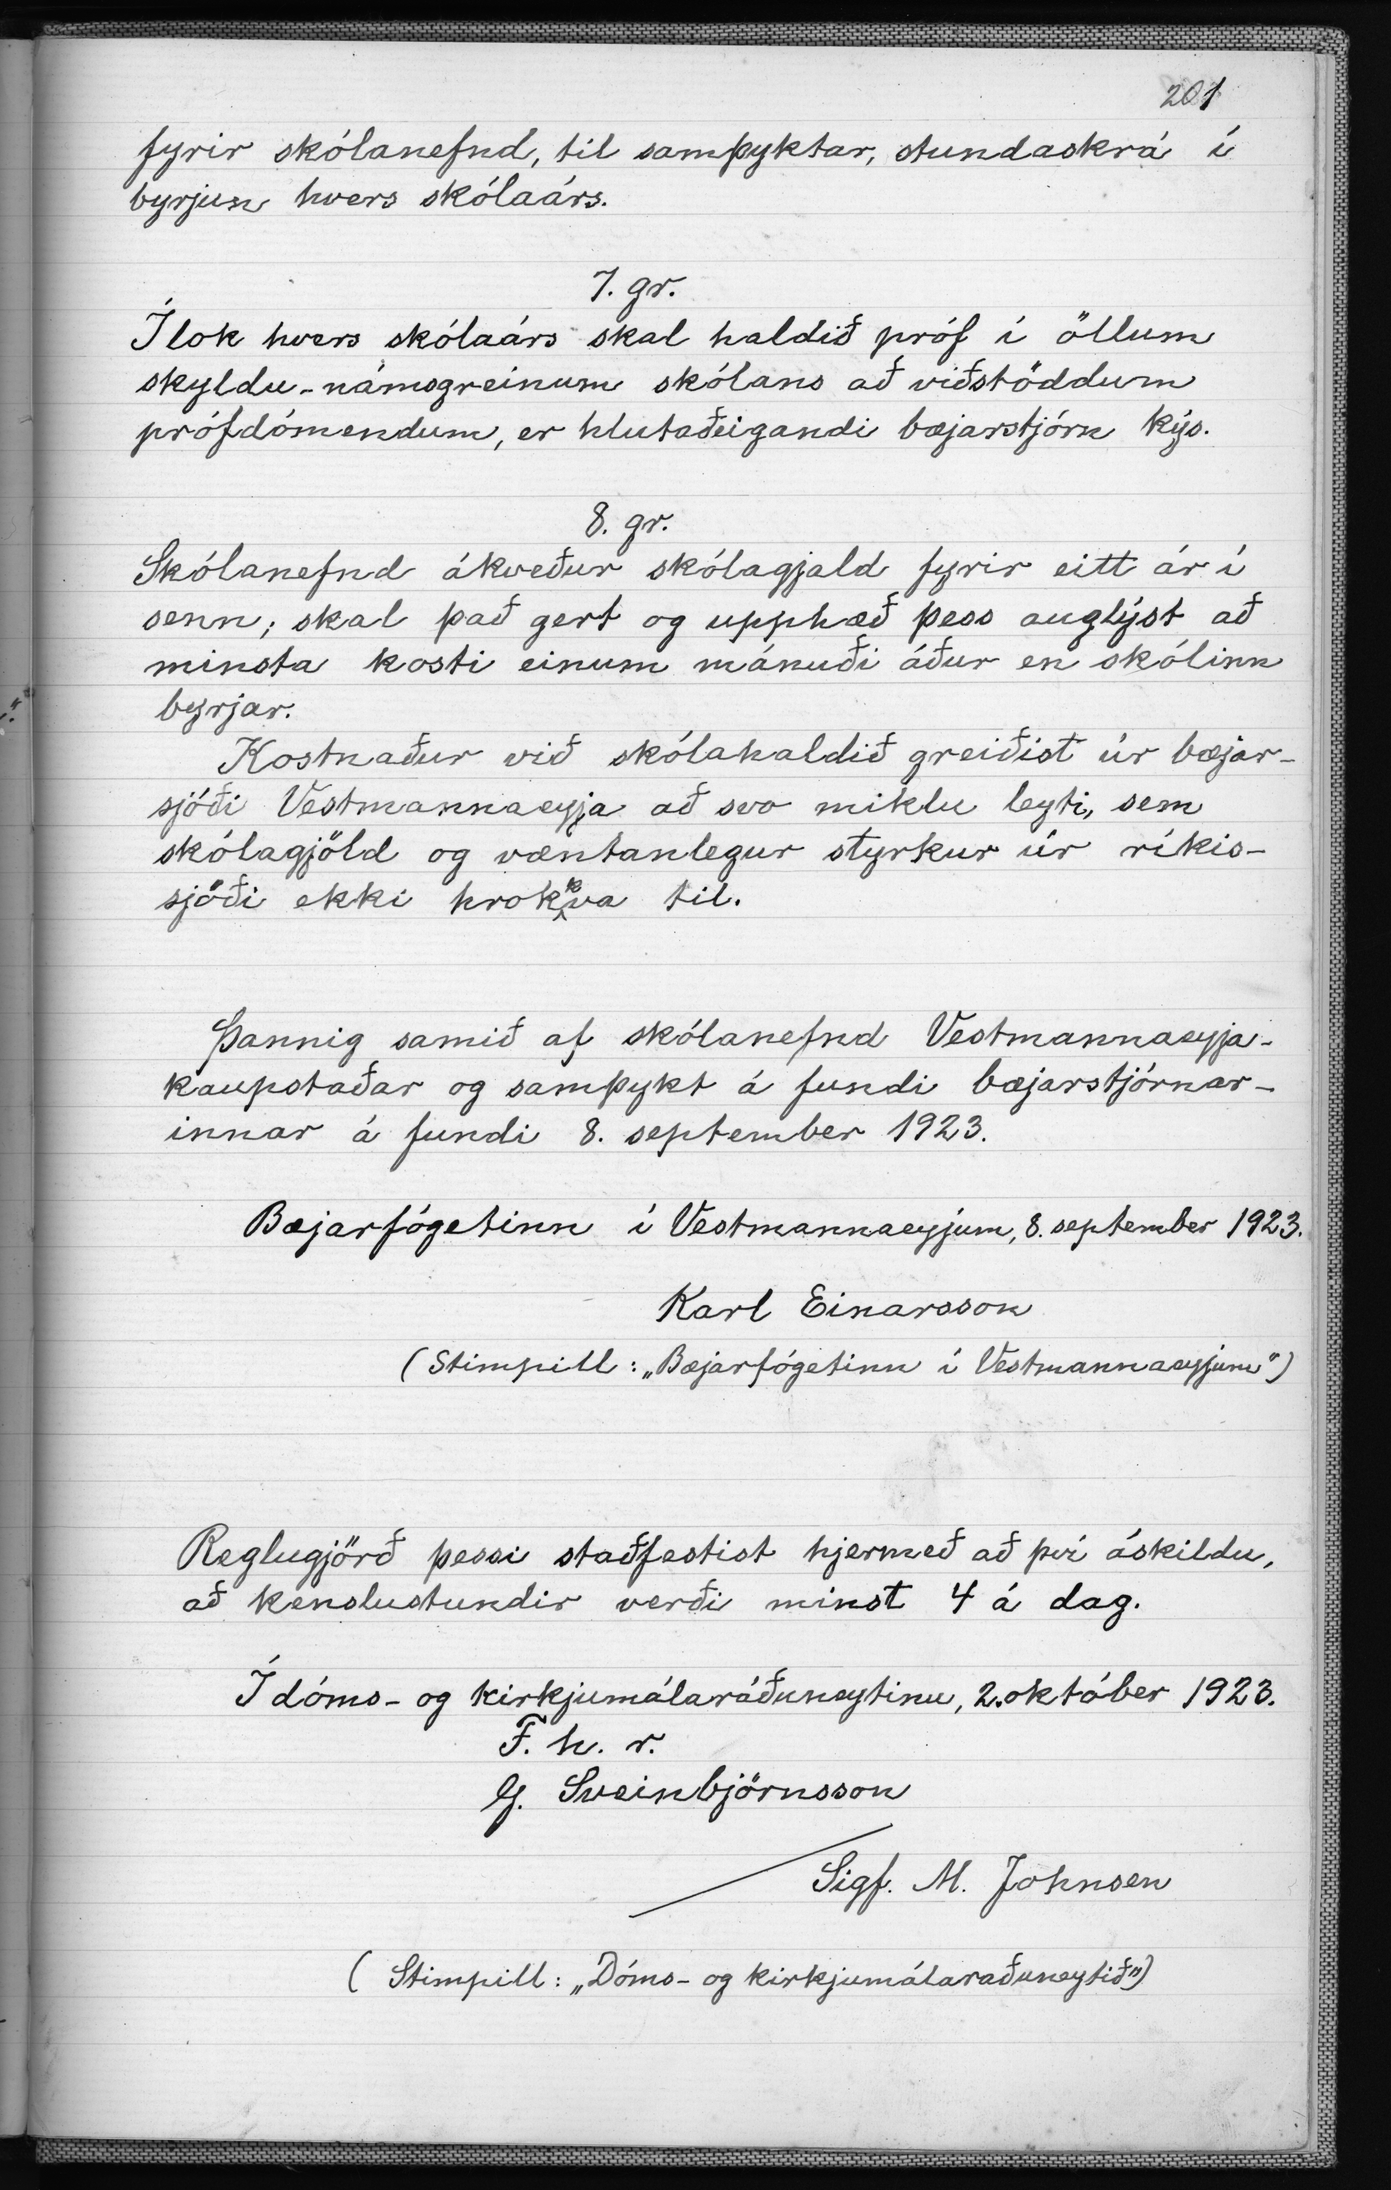 201
fyrir skólanefnd, til samþyktar, stundaskrá í
byrjun hvers skólaárs.
7. gr.
Í lok hvers skólaárs skal haldið próf í öllum
skyldu-námsgreinum skólans að viðstöddum
prófdómendum, er hlutaðeigandi bæjarstjórn kýs.
8. gr.
Skólanefnd ákveður skólagjald fyrir eitt ár í
senn; skal það gert og upphæð þess auglýst að
minsta kosti einum mánuði áður en skólinn
byrjar.
Kostnaður við skólahaldið greiðist úr bæjar-
sjóði Vestmannaeyja að svo miklu leyti, sem
skólagjöld og væntanlegur styrkur úr ríkis-
sjóði ekki hrokkva til.
Þannig samið af skólanefnd Vestmannaeyja-
kaupstaðar og samþykt á fundi bæjarstjórnar-
innar á fundi 8. september 1923.
Bæjarfógetinn í Vestmannaeyjum, 8. september 1923.
Karl Einarsson
(Stimpill: „Bæjarfógetinn í Vestmannaeyjum")
Reglugjörð þessi staðfestist hjermeð að því áskildu,
að kenslustundir verði minst 4 á dag.
Í dóms- og kirkjumálaráðuneytinu, 2. október 1923.
F. h. r.
G. Sveinbjörnsson
Sigf. M. Johnsen
(Stimpill: „Dóms- og kirkjumálaraðuneytið")